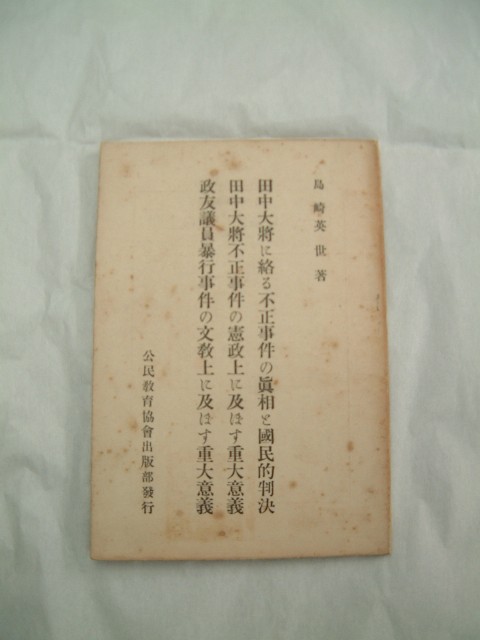 島崎英世著
田中大將に絡る不正事件の眞相と國民的判決
田中大將不正事件の憲政上に及ほす重大意義
政友議員暴行事件の文敎上に及ほす重大意義
公民敎育協會出版部發行